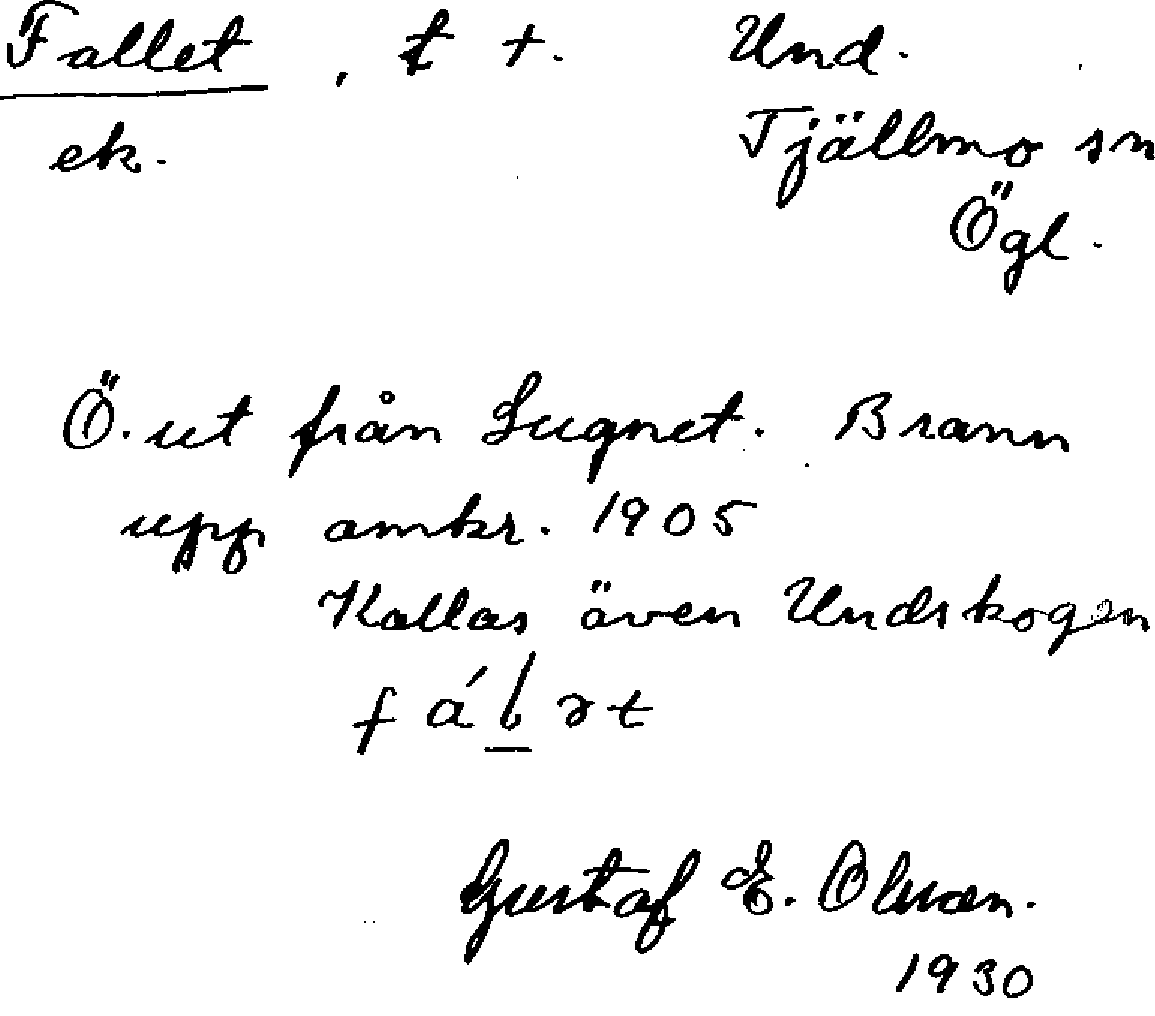 Fallet, t +. Und.
ek. Tjällmo sn
Ögl.
Ö. ut från Lugnet. Brann
upp omkr. 1905
Kallas även Undskogen
fálət
Gustaf E. Olsson.
1930